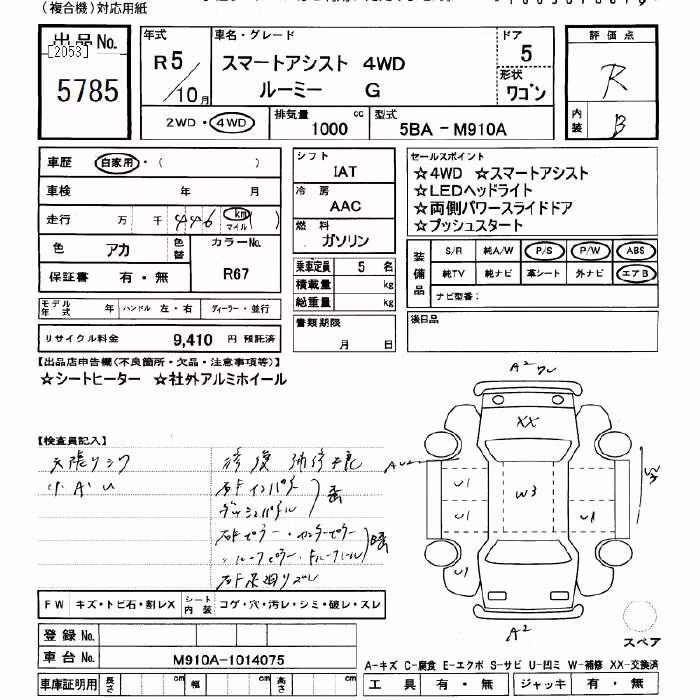 (複合機)対応用紙
出品No.
[2053]
5785
年式
R5/10月
車名・グレード
スマートアシスト 4WD
ルーミー G
ドア
5
形状
ワゴン
評価点
R
内装
B
2WD・4WD
排気量
1000 cc
型式
5BA-M910A
車歴 自家用・( )
車検 年 月
走行 万 千 446 km マイル ( )
色 アカ 色替
カラーNo.
R67
保証書 有・無
モデル年式 年 ハンドル 左・右 ディーラー・並行
リサイクル料金 9,410 円 預託済
シフト
IAT
冷房
AAC
燃料
ガソリン
乗車定員 5 名
積載量 kg
総重量 kg
書類期限
月 日
セールスポイント
☆4WD ☆スマートアシスト
☆LEDヘッドライト
☆両側パワースライドドア
☆プッシュスタート
装備品
S/R 純A/W P/S P/W ABS
純TV 純ナビ 革シート 外ナビ エアB
ナビ型番:
後日品
【出品店申告欄(不良箇所・欠品・注意事項等)】
☆シートヒーター ☆社外アルミホイール
【検査員記入】
天張りシワ
小AU
修復
右Fインパネ
ダッシュパネル
右Fピラー・センターピラー
A2
XX
W3
U1
U1
U1
U1
A2
スペア
FW キズ・トビ石・割レX シート内装 コゲ・穴・汚レ・シミ・破レ・スレ
登録No.
車台No. M910A-1014075
車庫証明用 長さ cm 幅 cm 高さ cm
A-キズ C-腐食 E-エクボ S-サビ U-凹ミ W-補修 XX-交換済
工具 有・無 ジャッキ 有・無